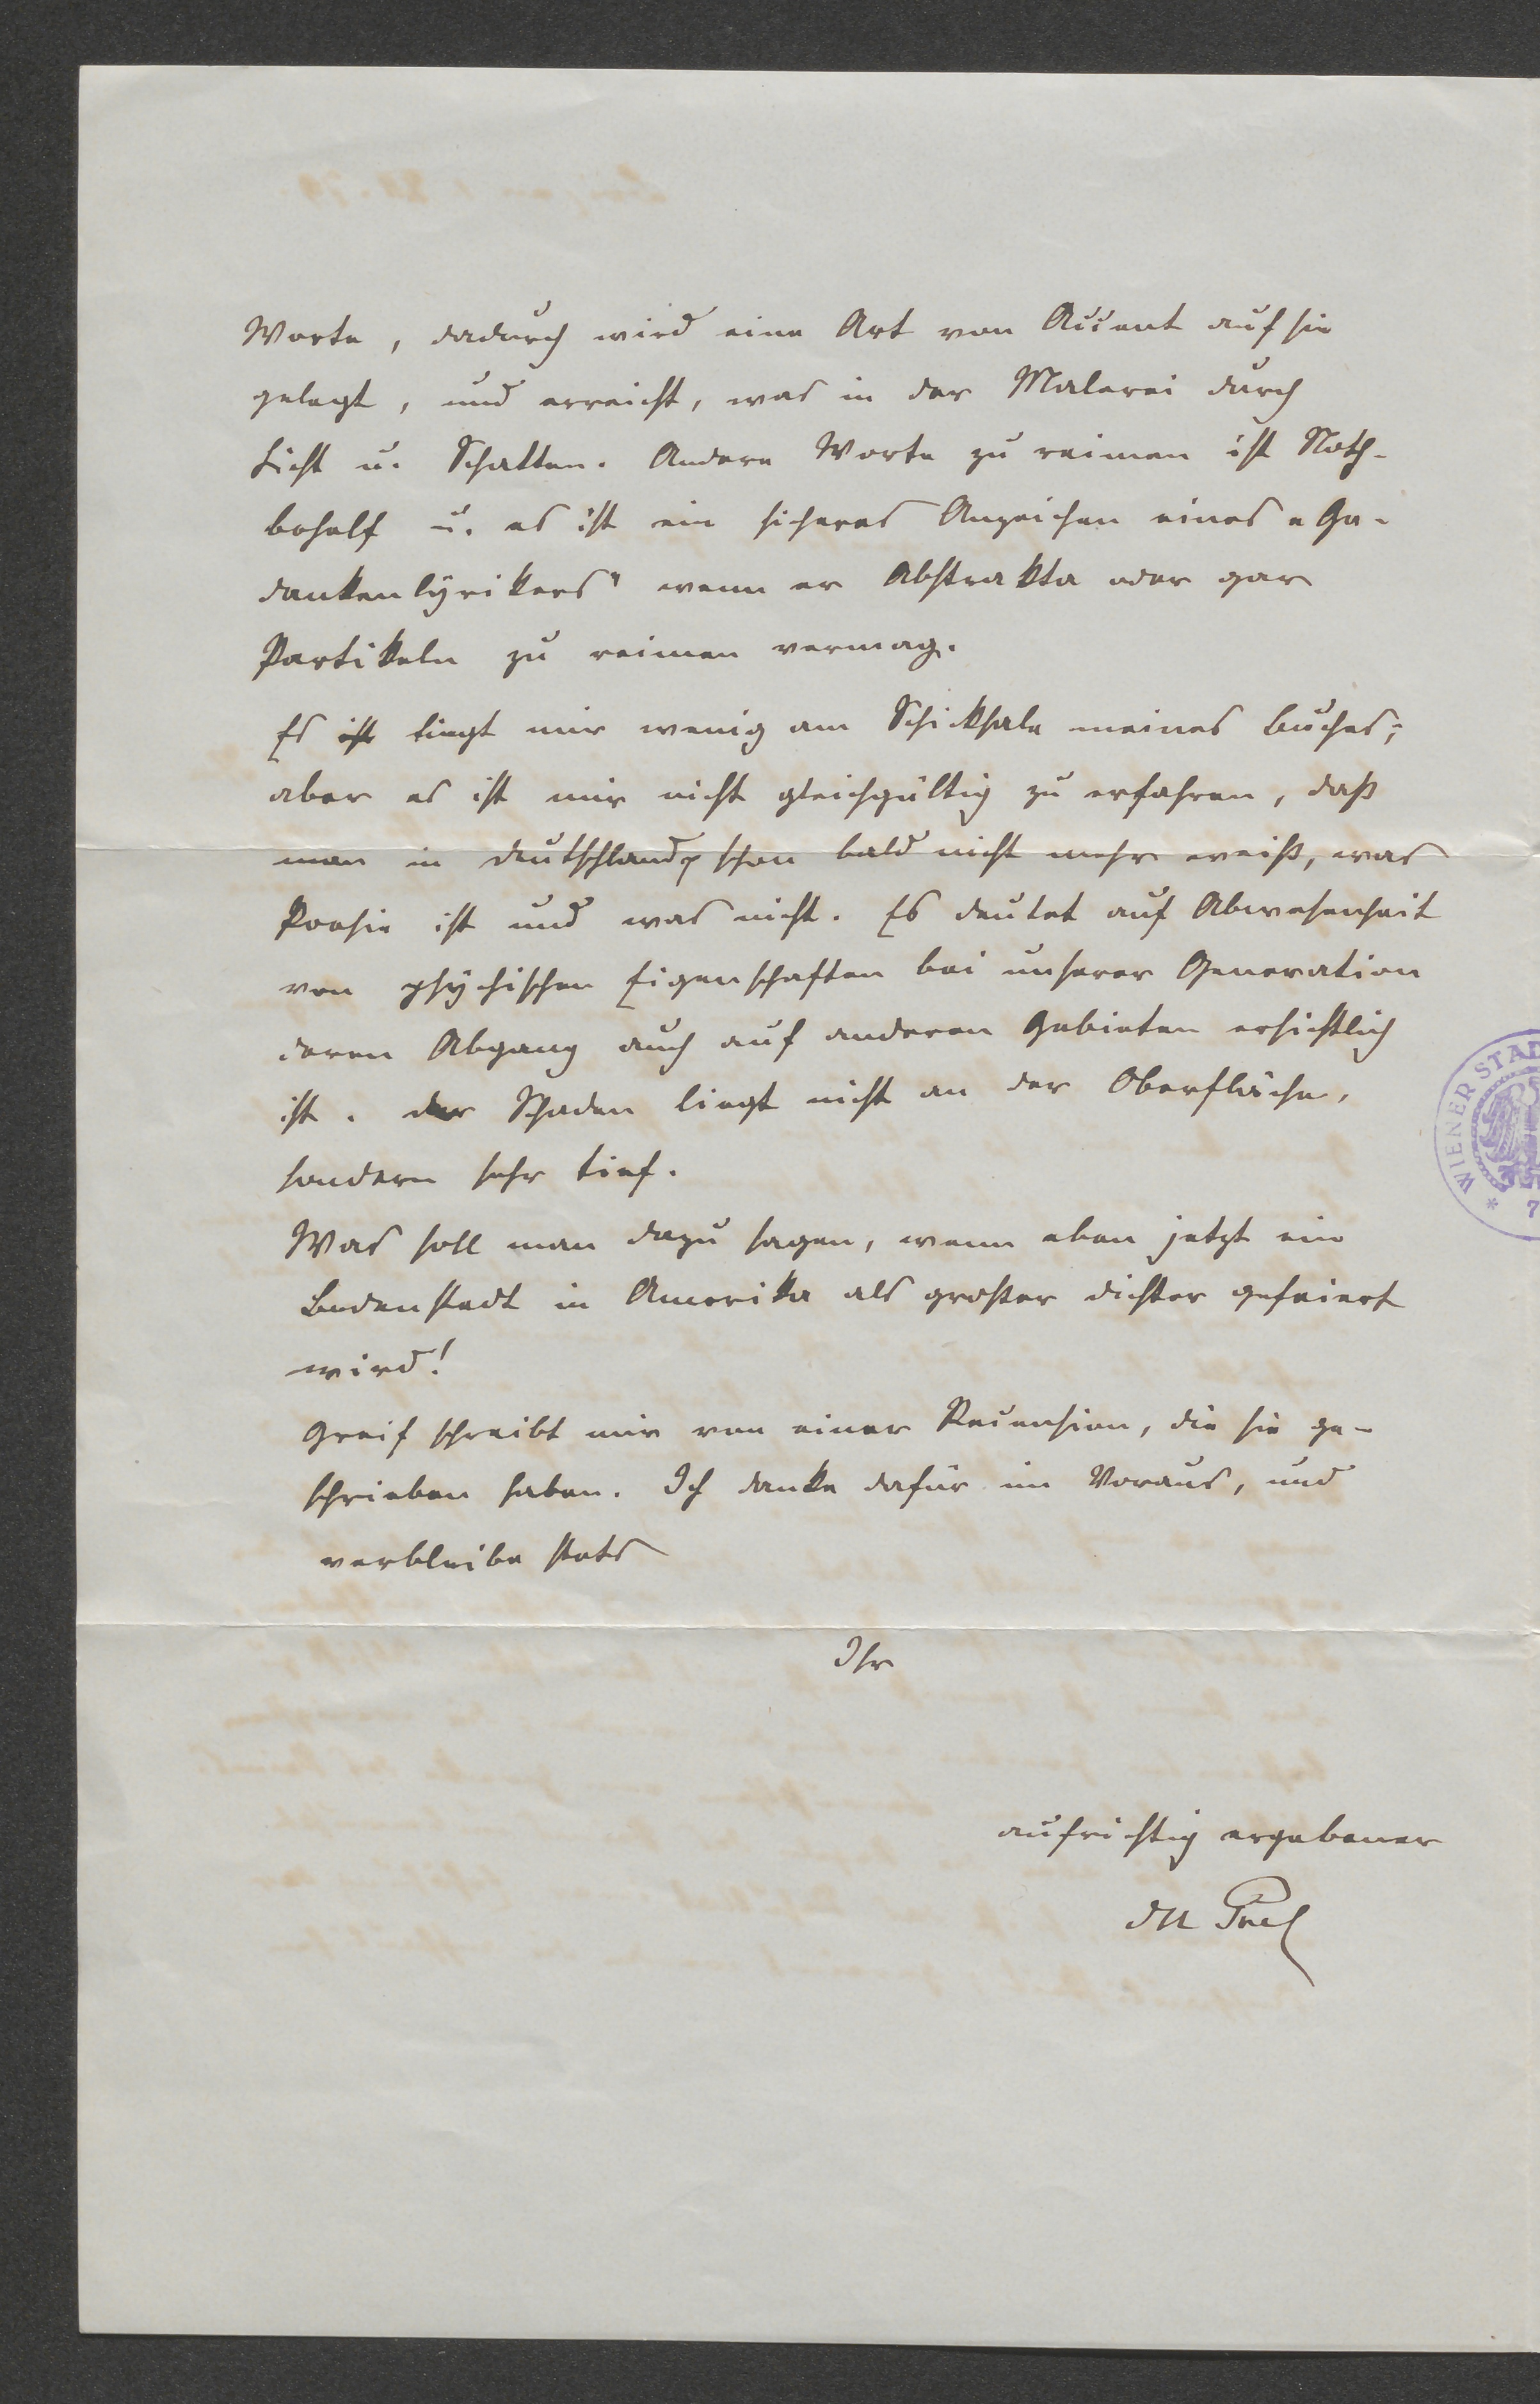 Worte, dadurch wird eine Art von Accent auf sie
gelegt, und erreicht, was in der Malerei durch
Licht u. Schatten. Andere Worte zu reimen ist Noth-
behelf u. es ist ein sicheres Anzeichen eines „Ge-
dankenlyrikers" wenn er Abstrakta oder gar
Partikeln zu reimen vermag.
Es ist liegt mir wenig am Schicksale meines Buches;
aber es ist mir nicht gleichgültig zu erfahren, daß
man in Deutschland schon bald nicht mehr weiß, was
Poesie ist und was nicht. Es deutet auf Abwesenheit
von psychischen Eigenschaften bei unserer Generation
deren Abgang auch auf anderen Gebieten ersichtlich
ist. Der Schaden liegt nicht an der Oberfläche,
sondern sehr tief.
Was soll man dazu sagen, wenn eben jetzt ein
Bodenstedt in Amerika als großer Dichter gefeiert
wird!
Greif schreibt mir von einer Recension, die sie ge-
schrieben haben. Ich danke dafür im Voraus, und
verbleibe stets
Ihr
aufrichtig ergebener
du Prel
WIENER STAD
* 7